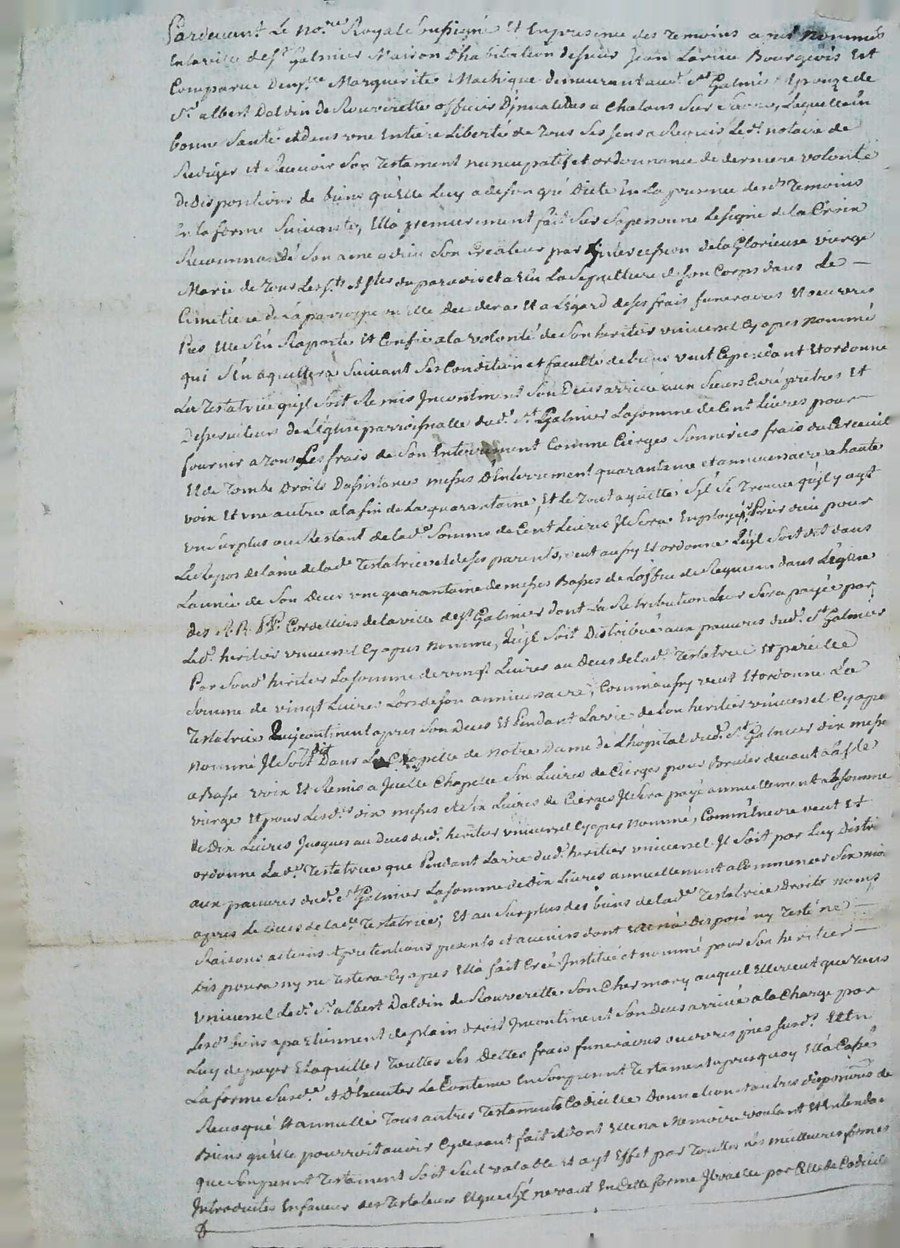 Pardevant Le No.re Royal Soussigné Et En presence des Temoins a pres nommés
En la ville de S.t Galmier Maison d'habitation de sieur Jean Larue Bourgeois Est
Comparue Dem.lle Marguerite Machique demeurant aud.t S.t Galmier Epouze de
S.r albert Daldin de Rouverette officier D'jnvalides a Chalons Sur Saone, Laquelle En
bonne Santé et dans une Entiere Liberté de Tous Ses sens a Requis Led.t notaire de
Rediger et Recevoir Son Testament nuncupatif et ordonnance de derniere volonté
de disposition de biens qu'Elle Luy a de son gré Dicté En La presence desd.ts Temoins
En la forme Suivante, Ella premierement fait Sur Sa personne Le signe de la Croix
Recommandé Son ame a dieu Son Createur par L'intercession de la Glorieuse vierge
Marie de Tous Les S.ts et S.tes du paradis et a Elu La Sepulture de Son Corps dans Le
Cimetiere de la parroisse ou Elle decedera Et a L'egard de ses frais funeraires Et oeuvres
Pies Elle S'en Raporte Et Confie a la volonté de Son heritier universel Cy apres nommé
qui S'En aquittera Suivant Ses Condition et faculté de biens veut Cependant Et ordonne
La Testatrice qu'jl Soit Remis Jncontinent Son Deces arrivé aux Sieurs Curé pretres Et
Deserviteur de L'Eglise parroissialle dud.t S.t Galmier La somme de Cent Livres pour
fournir a tous Les frais de Son Enterrement Comme Cierges Sonneries frais du Cercueil
Et de Tombe Droits D'assistances messes D'Enterrement quarantaine et anniversaire a haute
voix Et une autre a la fin de La quarantaine, Et le Tout aquitté S'jl Se Trouve qu'jl y ayt
un Surplus ou Restant de lad.e Somme de Cent Livres Jl Sera Employé a Prier dieu pour
Le Repos de L'ame de lad.e Testatrice et de ses parents, veut aussy Et ordonne qu'jl Soit dit dans
L'année de Son Deces une quarantaine de messes Basses de L'office de Requiem dans L'Eglise
des R.R. P.P. Cordelliers de la ville de S.t Galmier dont La Retribution Leur Sera payée par
Led.t heritier universel Cy apres nommé, qu'jl Soit Distribué aux pauvres dud.t S.t Galmier
Par Sond.t heritier La somme de vingt Livres au Deces de lad.e Testatrice Et pareille
Somme de vingt Livres Lors de son anniversaire, Comm'aussy veut Et ordonne La
Testatrice qu'jncontinent apres Son Deces Et Pendant La vie de Son heritier universel Cy apres
nommé Jl Soit Dit Dans La Chapelle de notre Dame de L'hopital dud.t S.t Galmier dix messes
a Basse voix Et Remis a Jcelle Chapelle Six Livres de Cierges pour Bruler devant la S.te
vierge Et pour Lesd.tes dix messes et Six Livres de Cierges Jl Sera payé annuellement La somme
de Dix Livres Jusques au Deces dud.t heritier universel Cy apres nommé, Comm'Encore veut Et
ordonne Lad.e Testatrice que Pendant La vie dud.t heritier universel Jl Soit par Luy Distri
aux pauvres dud.t S.t Galmier La somme de Dix Livres annuellement a Commencer Six mois
apres Le deces de lad.e Testatrice, Et au Surplus des biens de lad.e Testatrice Droits noms
Raisons actions Et pretentions presents et avenirs dont Elle n'a Disposé ny Testé ne
dispozera ny ne Testera Cy apres Ella fait Creé Jnstitué et nommé pour Son heritier
universel Led.t S.r albert Daldin de Rouverette Son Cher mary auquel Elle veut que Tous
Lesd.ts biens apartiennent de plain droit Jncontinent Son Deces arrivé a la Charge par
Luy de payer Et aquitter Toutes Ses Dettes frais funeraires oeuvres pies Susd.tes Et En
La forme Susd.e Et D'Executer Le Contenu En Son present Testament, par lequel Ella Cassé
Revoqué Et annullé Tous autres Testaments Codicille Donnation Et autres dispositions de
Biens qu'Elle pourroit avoir Cy devant fait Et dont Elle n'a Memoire voulant Et Entendant
que Son present Testament Soit Seul valable Et ayt Effet par Toutes Les meilleures formes
Introduites En faveur des Testateurs Et que S'jl ne vaut En Cette forme Jl vaille par Celle de Codicille